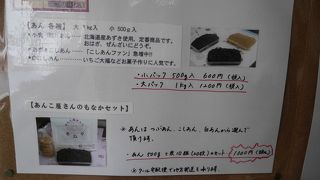 【あん 各種】 大 1kg入 小 500g入
北海道産あずき使用、定番商品です。
おはぎ、ぜんざいにどうぞ。
あずきこしあん・・「こしあんファン」急増中!!
いちご大福などお菓子作りに人気です。
・小パック 500g入 600円(税込)
・大パック 1kg入 1200円(税込)
【あんこ屋さんのもなかセット】
あんは つぶあん、こしあん、白あんから選んで
頂けます。
・あん 500g と 最中種 セット 1000円(税込)